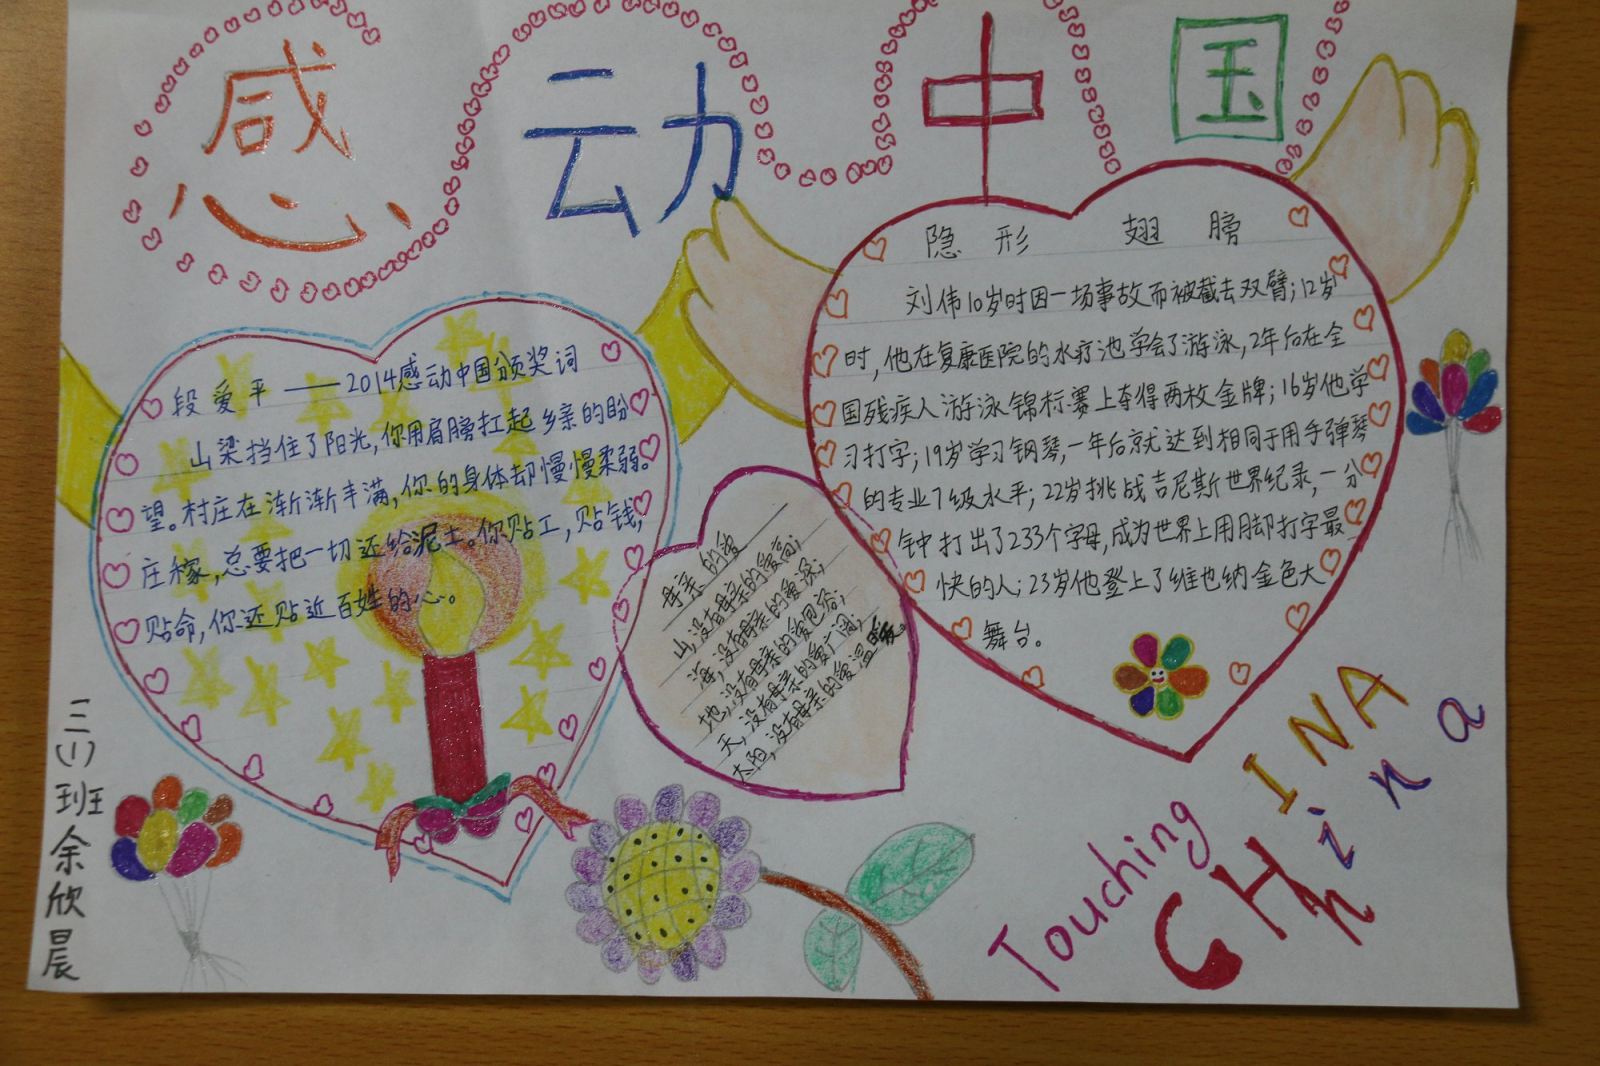 感动中国
段爱平——2014感动中国颁奖词
山梁挡住了阳光,你用肩膀扛起乡亲的盼
望。村庄在渐渐丰满,你的身体却慢慢柔弱。
庄稼,总要把一切还给泥土。你贴工,贴钱,
贴命,你还贴近百姓的心。
母亲的爱
山,没有母亲的爱高;
海,没有母亲的爱深;
地,没有母亲的爱包容;
天,没有母亲的爱广阔;
太阳,没有母亲的爱温暖。
隐形 翅膀
刘伟10岁时因一场事故而被截去双臂;12岁
时,他在复康医院的水疗池学会了游泳,2年后在全
国残疾人游泳锦标赛上夺得两枚金牌;16岁他学
习打字;19岁学习钢琴,一年后就达到相同于用手弹琴
的专业7级水平;22岁挑战吉尼斯世界纪录,一分
钟打出了233个字母,成为世界上用脚打字最
快的人;23岁他登上了维也纳金色大
舞台。
三(1)班余欣晨
Touching
CHINA
hina